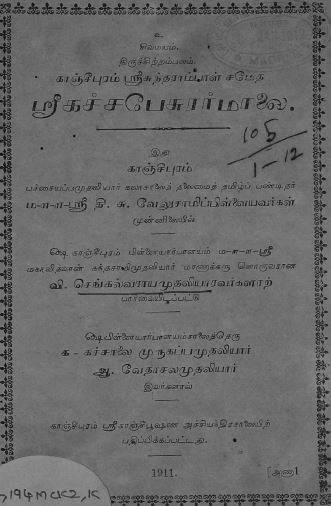 உ
சிவமயம்.
திருச்சிற்றம்பலம்.
காஞ்சிபுரம் ஸ்ரீசுந்தராம்பாள் சமேத
ஸ்ரீகச்சபேசுரர்மாலை.
105
1-12
இது
காஞ்சிபுரம்
பச்சையப்பமுதலியார் கலாசாலைத் தலைமைத் தமிழ்ப் பண்டிதர்
ம-ள-ள-ஸ்ரீ தி. சு. வேலுசாமிப்பிள்ளையவர்கள்
முன்னிலையில்
ஷெ காஞ்சிபுரம் பிள்ளையார்பாளயம் ம-ள-ள-ஸ்ரீ
மகாவித்வான் கந்தசாமிமுதலியார் மாணாக்கரு ளொருவரான
வி. செங்கல்வராயமுதலியாரவர்களாற்
பார்வையிடப்பட்டு
ஷெபிள்ளையார்பாளயம்சாலைத்தெரு
க - கச்சாலை முருகப்பமுதலியார்
ஆ. வேதாசலமுதலியார்
இவர்களால்
காஞ்சிபுரம் ஸ்ரீகாஞ்சிபூஷண அச்சியந்திரசாலையிற்
பதிப்பிக்கப்பட்டது.
1911.
[அணா1